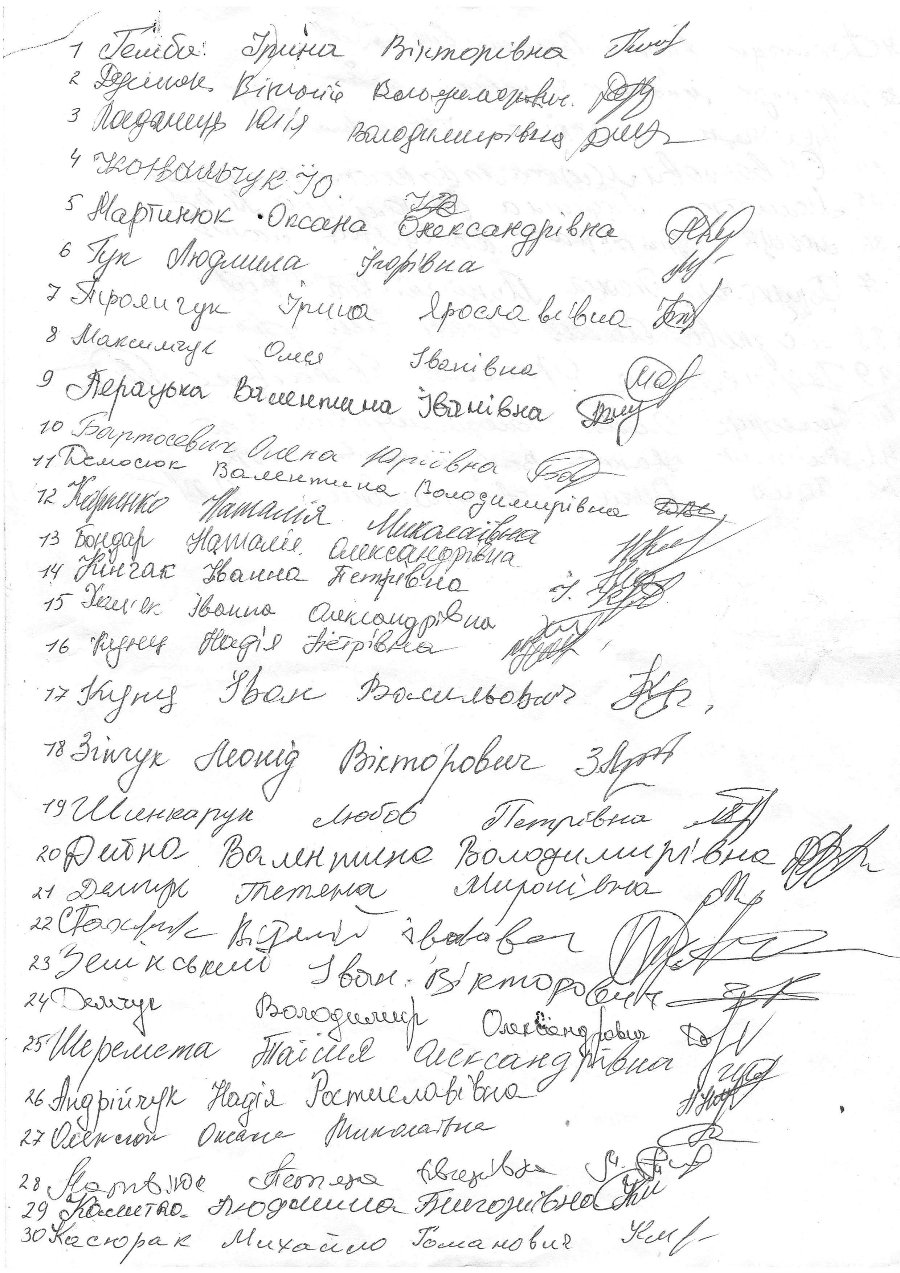 1 Гемба Ірина Вікторівна
2 Віталій Володимирович
3 Юлія Володимирівна
4 Ковальчук Ю.
5 Мартинюк Оксана Олександрівна
6 Гук Людмила Ігорівна
7 Ірина Ярославівна
8 Максимчук Олеся Іванівна
9 Перацька Валентина Іванівна
10 Бартосевич Олена Юріївна
11 Демосюк Валентина Володимирівна
12 Карпенко Наталія Миколаївна
13 Бондар Наталія Олександрівна
14 Кінчак Іванна Петрівна
15 Іванна Олександрівна
16 Кунец Надія Петрівна
17 Кунец Іван Васильович
18 Зінчук Леонід Вікторович
19 Шинкарук Любов Петрівна
20 Дейна Валентина Володимирівна
21 Демчук Тетяна Миронівна
22 Віталій
23 Зелінський Іван Вікторович
24 Демчук Володимир Олександрович
25 Шеремета Таїсія Олександрівна
26 Андрійчук Надія Ростиславівна
27 Оксана Миколаївна
28 Тетяна Євгенівна
29 Людмила Григорівна
30 Касюрак Михайло Романович